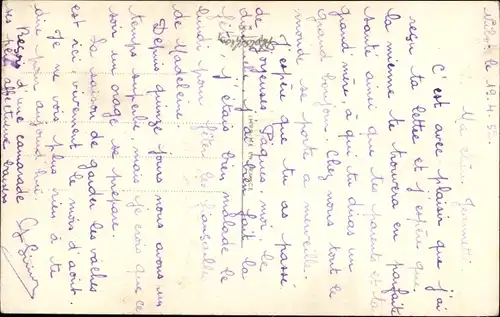 le 19.4.50
Ma chère Jeannette
C'est avec plaisir que j'ai
reçu ta lettre et j'espère que
la mienne te trouvera en parfaite
santé ainsi que tes parents et ta
grand'mère, à qui tu diras un
grand bonjour. Chez nous tout le
monde se porte à merveille.
J'espère que tu as passé
de joyeuses Pâques moi le
fait la
fête, j'étais bien malade le
lundi pour fêter les fiançailles
de Madeleine.
Depuis quinze jours nous avons un
temps superbe, mais je crois que ce
soir un orage se prépare.
La saison de garder les vaches
est ici, vivement le mois d'août.
Je ne vois plus rien à te
dire pour aujourd'hui
Reçois d'une camarade
ses plus affectueux baisers